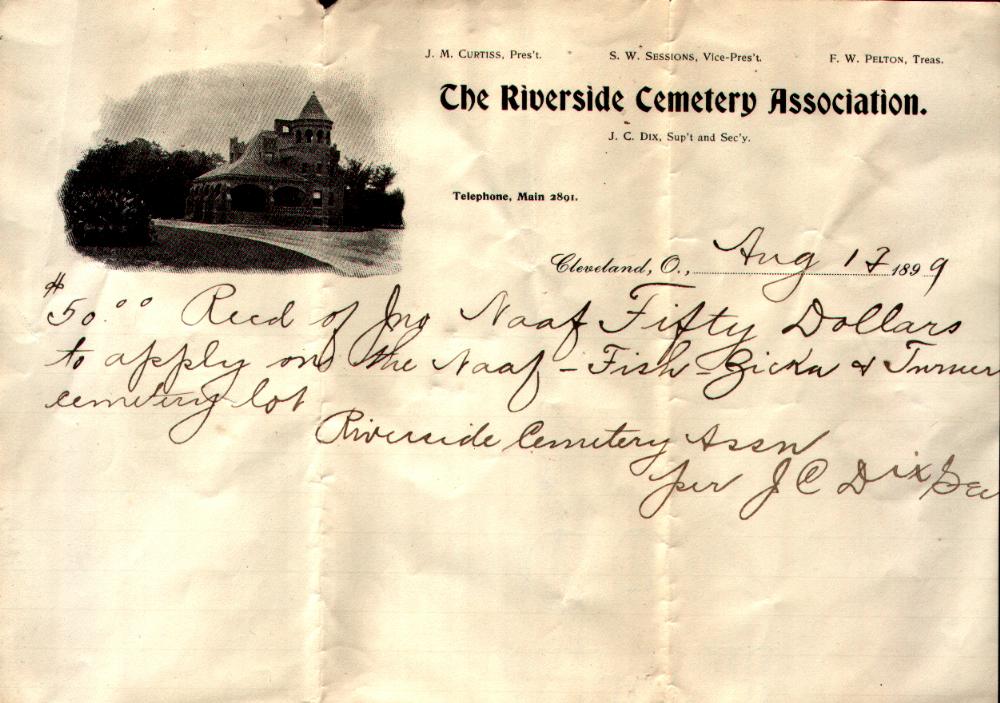 J. M. CURTISS, Pres't. S. W. SESSIONS, Vice-Pres't. F. W. PELTON, Treas.
The Riverside Cemetery Association.
J. C. DIX, Sup't and Sec'y.
Telephone, Main 2891.
Cleveland, O., Aug 17 1899
$50.00 Recd of Jno Naaf Fifty Dollars
to apply on the Naaf - Fish - Zicka & Turner
cemetery lot
Riverside Cemetery Assn
per J C Dix Sec